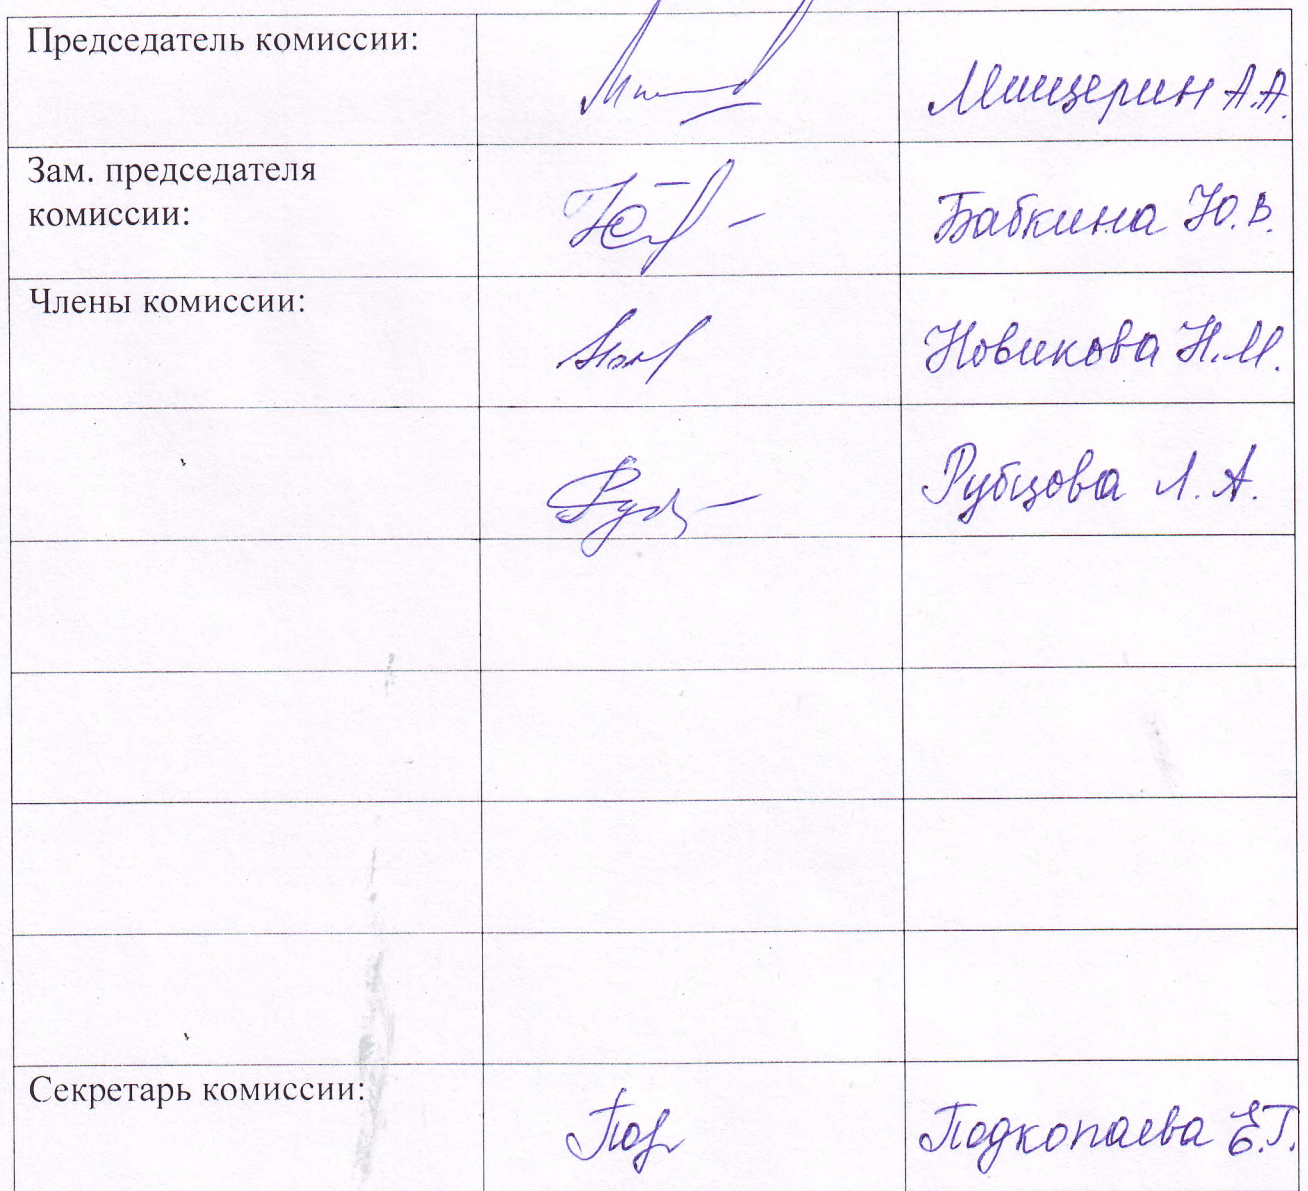 Председатель комиссии:
Мищерин А.А.
Зам. председателя
комиссии:
Бабкина Ю.В.
Члены комиссии:
Новикова Н.М.
Рубцова Л.А.
Секретарь комиссии:
Подкопаева Е.Г.